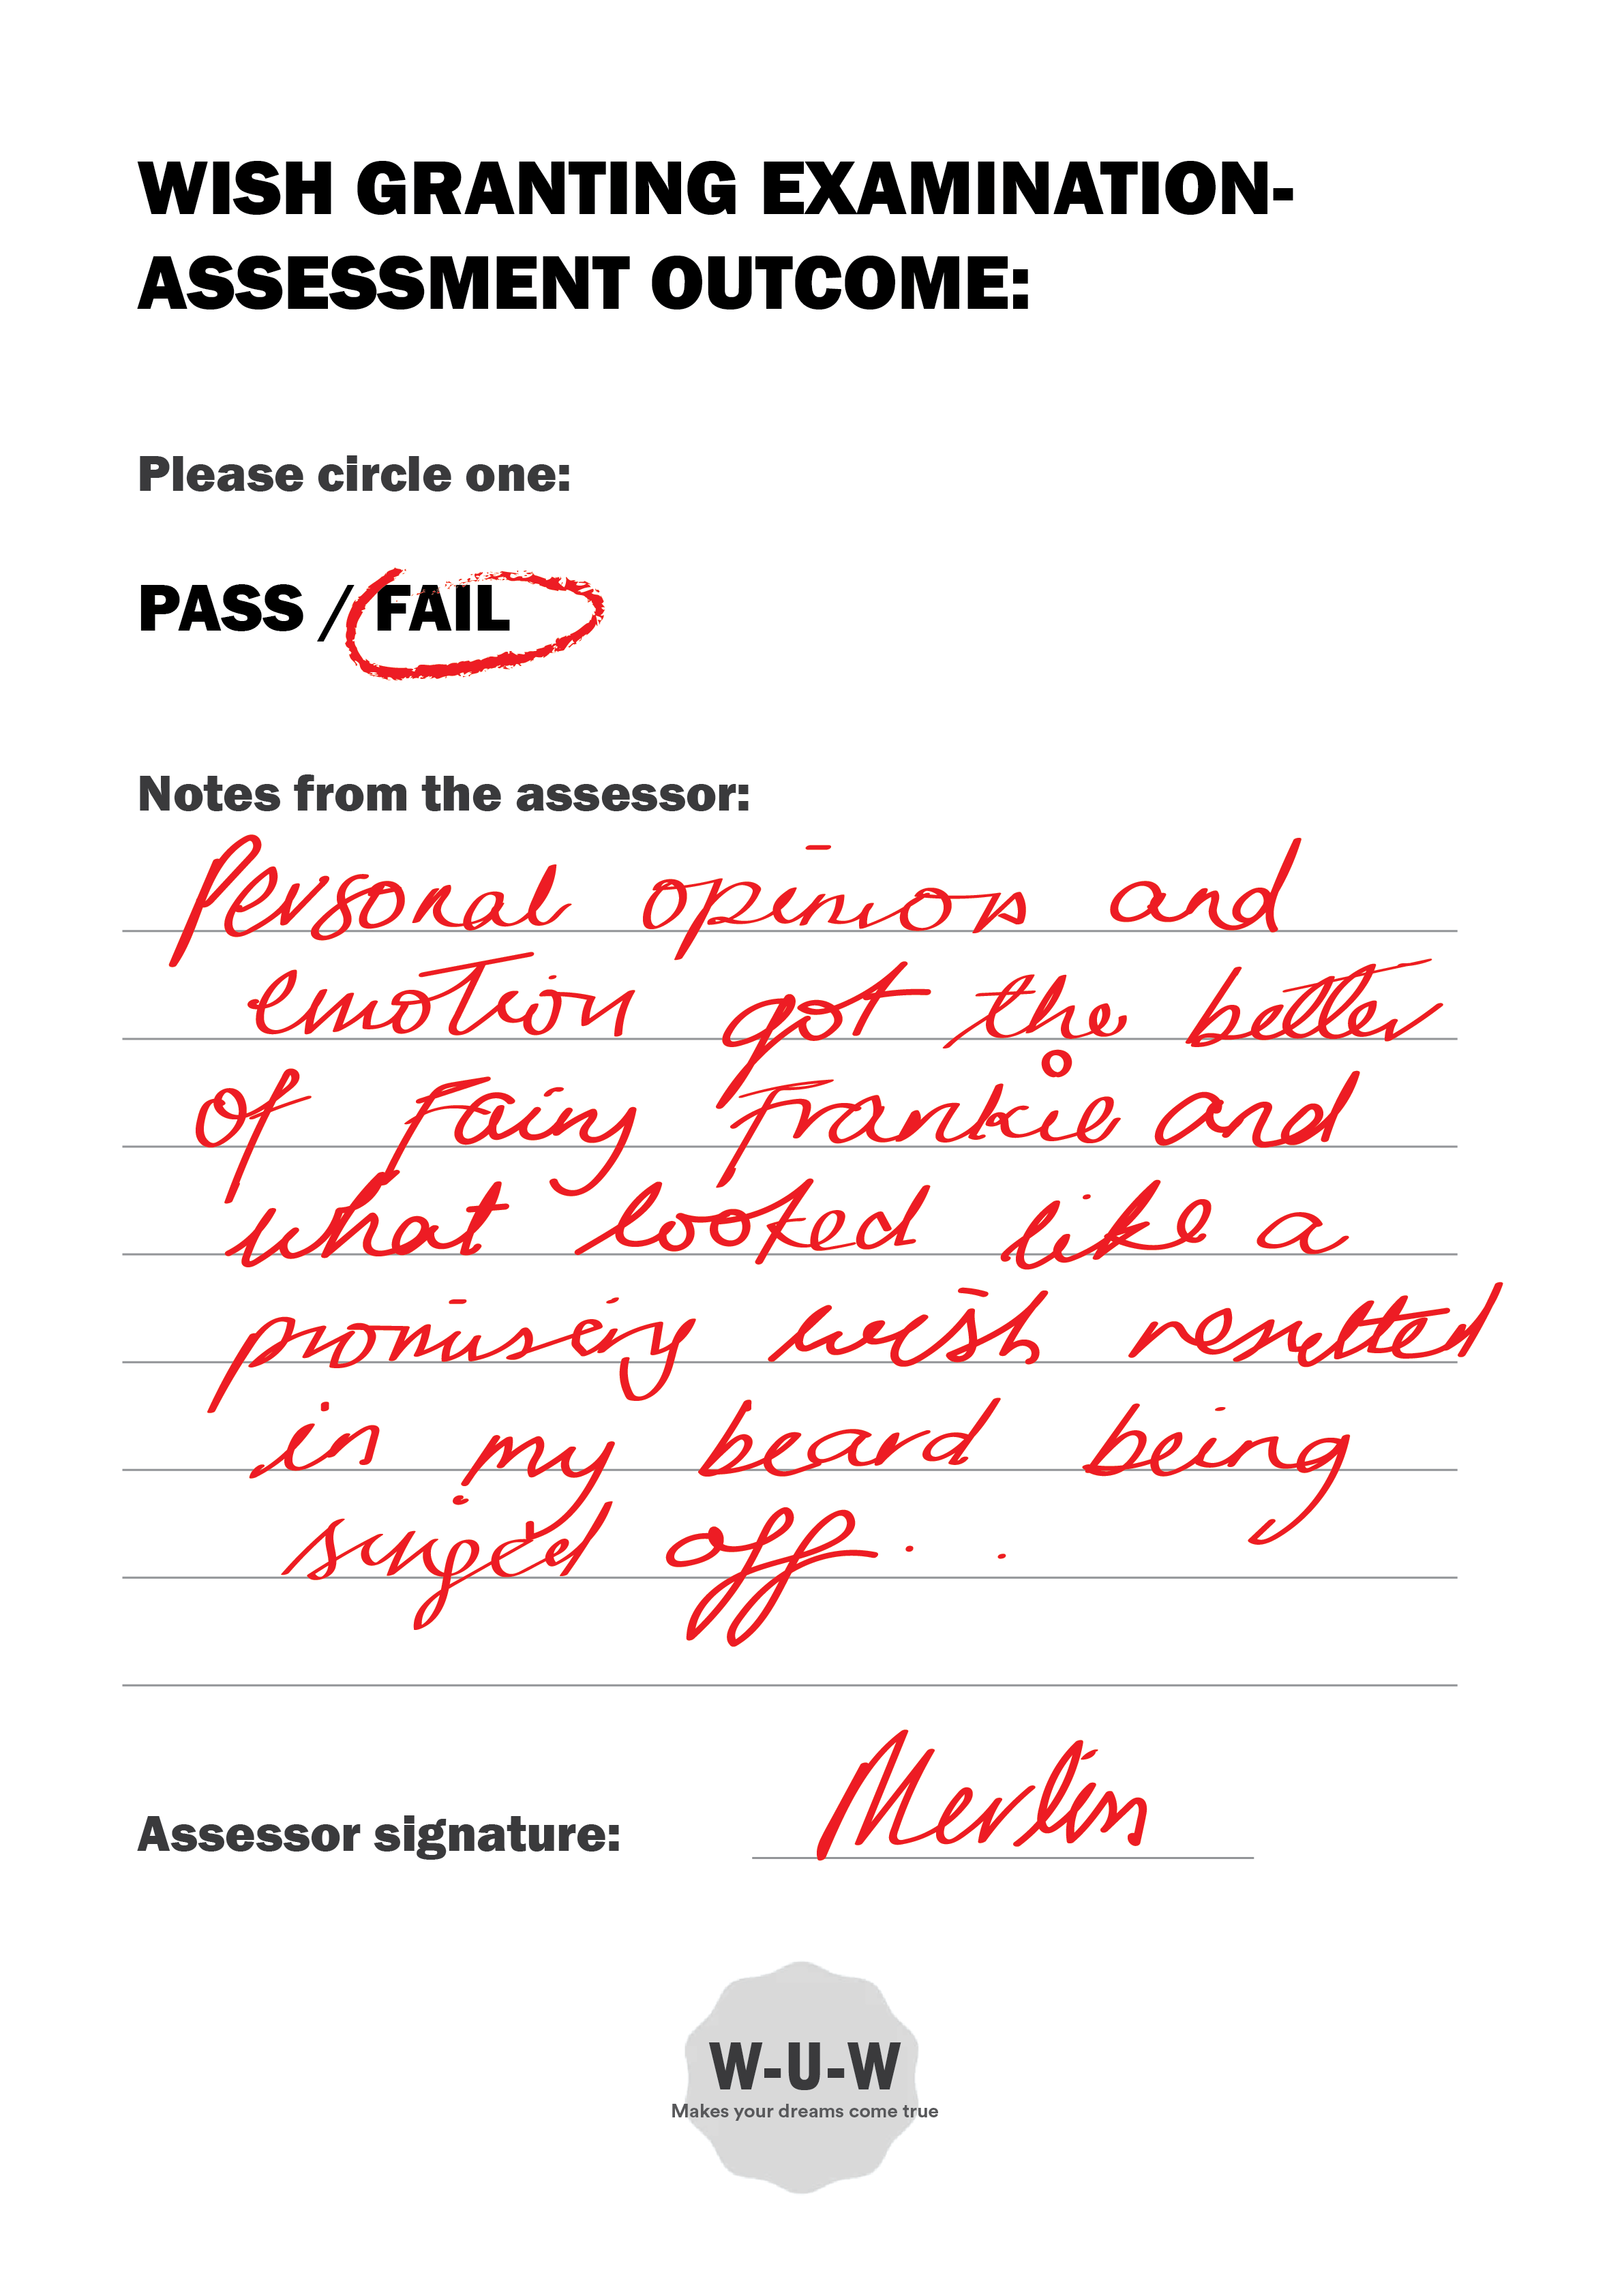 WISH GRANTING EXAMINATION-
ASSESSMENT OUTCOME:
Please circle one:
PASS / FAIL
Notes from the assessor:
Personal opinion and
emotion got the better
of Fairy Frankie and
what looked like a
promising wish resulted
in my beard being
singed off. .
Assessor signature: Merlin
W-U-W
Makes your dreams come true